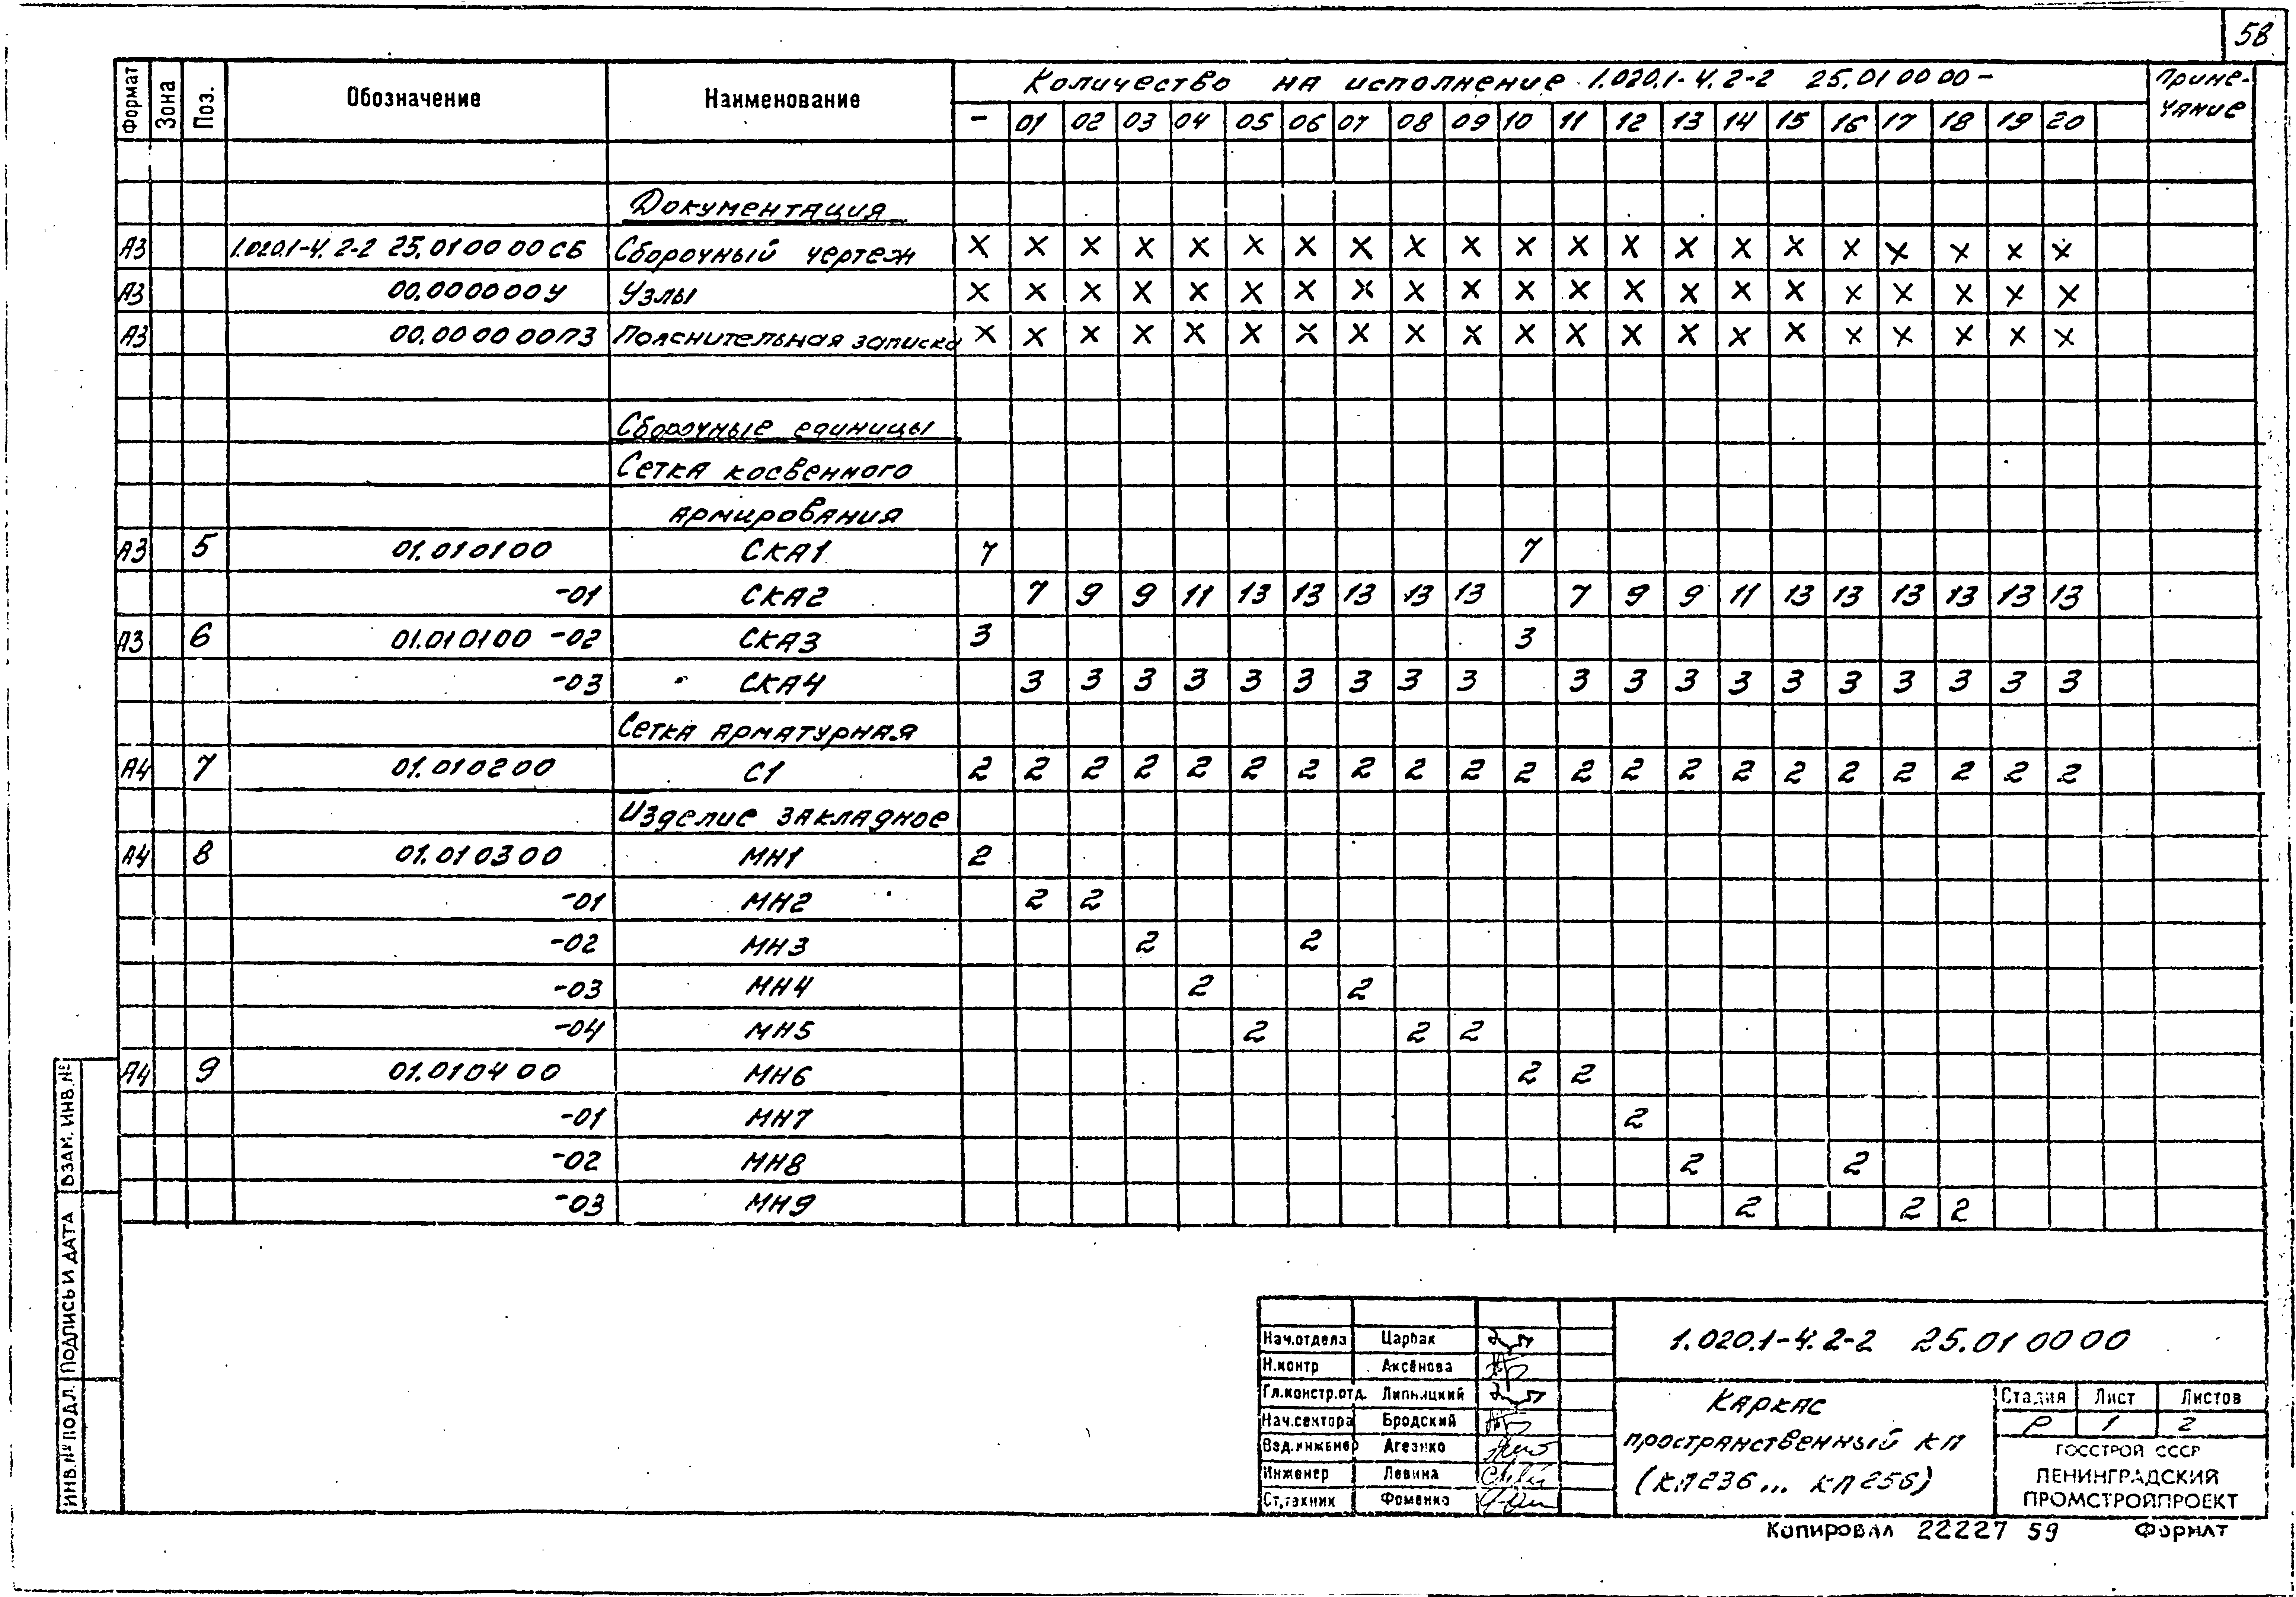 58
Формат Зона Поз. Обозначение Наименование Количество на исполнение 1.020.1-4.2-2 25.01 00 00 - Приме-
чание
- 01 02 03 04 05 06 07 08 09 10 11 12 13 14 15 16 17 18 19 20
Документация
А3 1.020.1-4.2-2 25.01 00 00 СБ Сборочный чертеж х х х х х х х х х х х х х х х х х х х х х
А3 00.00 00 00 У Узлы х х х х х х х х х х х х х х х х х х х х х
А3 00.00 00 00 ПЗ Пояснительная записка х х х х х х х х х х х х х х х х х х х х х
Сборочные единицы
Сетка косвенного
армирования
А3 5 01.01 01 00 СКА1 7 7
-01 СКА2 7 9 9 11 13 13 13 13 13 7 9 9 11 13 13 13 13 13 13
А3 6 01.01 01 00 -02 СКА3 3 3
-03 СКА4 3 3 3 3 3 3 3 3 3 3 3 3 3 3 3 3 3 3 3
Сетка арматурная
А4 7 01.01 02 00 С1 2 2 2 2 2 2 2 2 2 2 2 2 2 2 2 2 2 2 2 2 2
Изделие закладное
А4 8 01.01 03 00 МН1 2
-01 МН2 2 2
-02 МН3 2 2
-03 МН4 2 2
-04 МН5 2 2 2
А4 9 01.01 04 00 МН6 2 2
-01 МН7 2
-02 МН8 2 2
-03 МН9 2 2 2
ИНВ.№ ПОДЛ. ПОДПИСЬ И ДАТА ВЗАМ. ИНВ.№
Нач.отдела Царбак
Н.контр Аксёнова
Гл.констр.отд. Липницкий
Нач.сектора Бродский
Вед.инженер Агеенко
Инженер Левина
Ст.техник Фоменко
1.020.1-4.2-2 25.01 00 00
Каркас
пространственный КП
(КП236... КП256)
Стадия Лист Листов
Р 1 2
ГОССТРОЙ СССР
ЛЕНИНГРАДСКИЙ
ПРОМСТРОЙПРОЕКТ
Копировал 22227 59 Формат